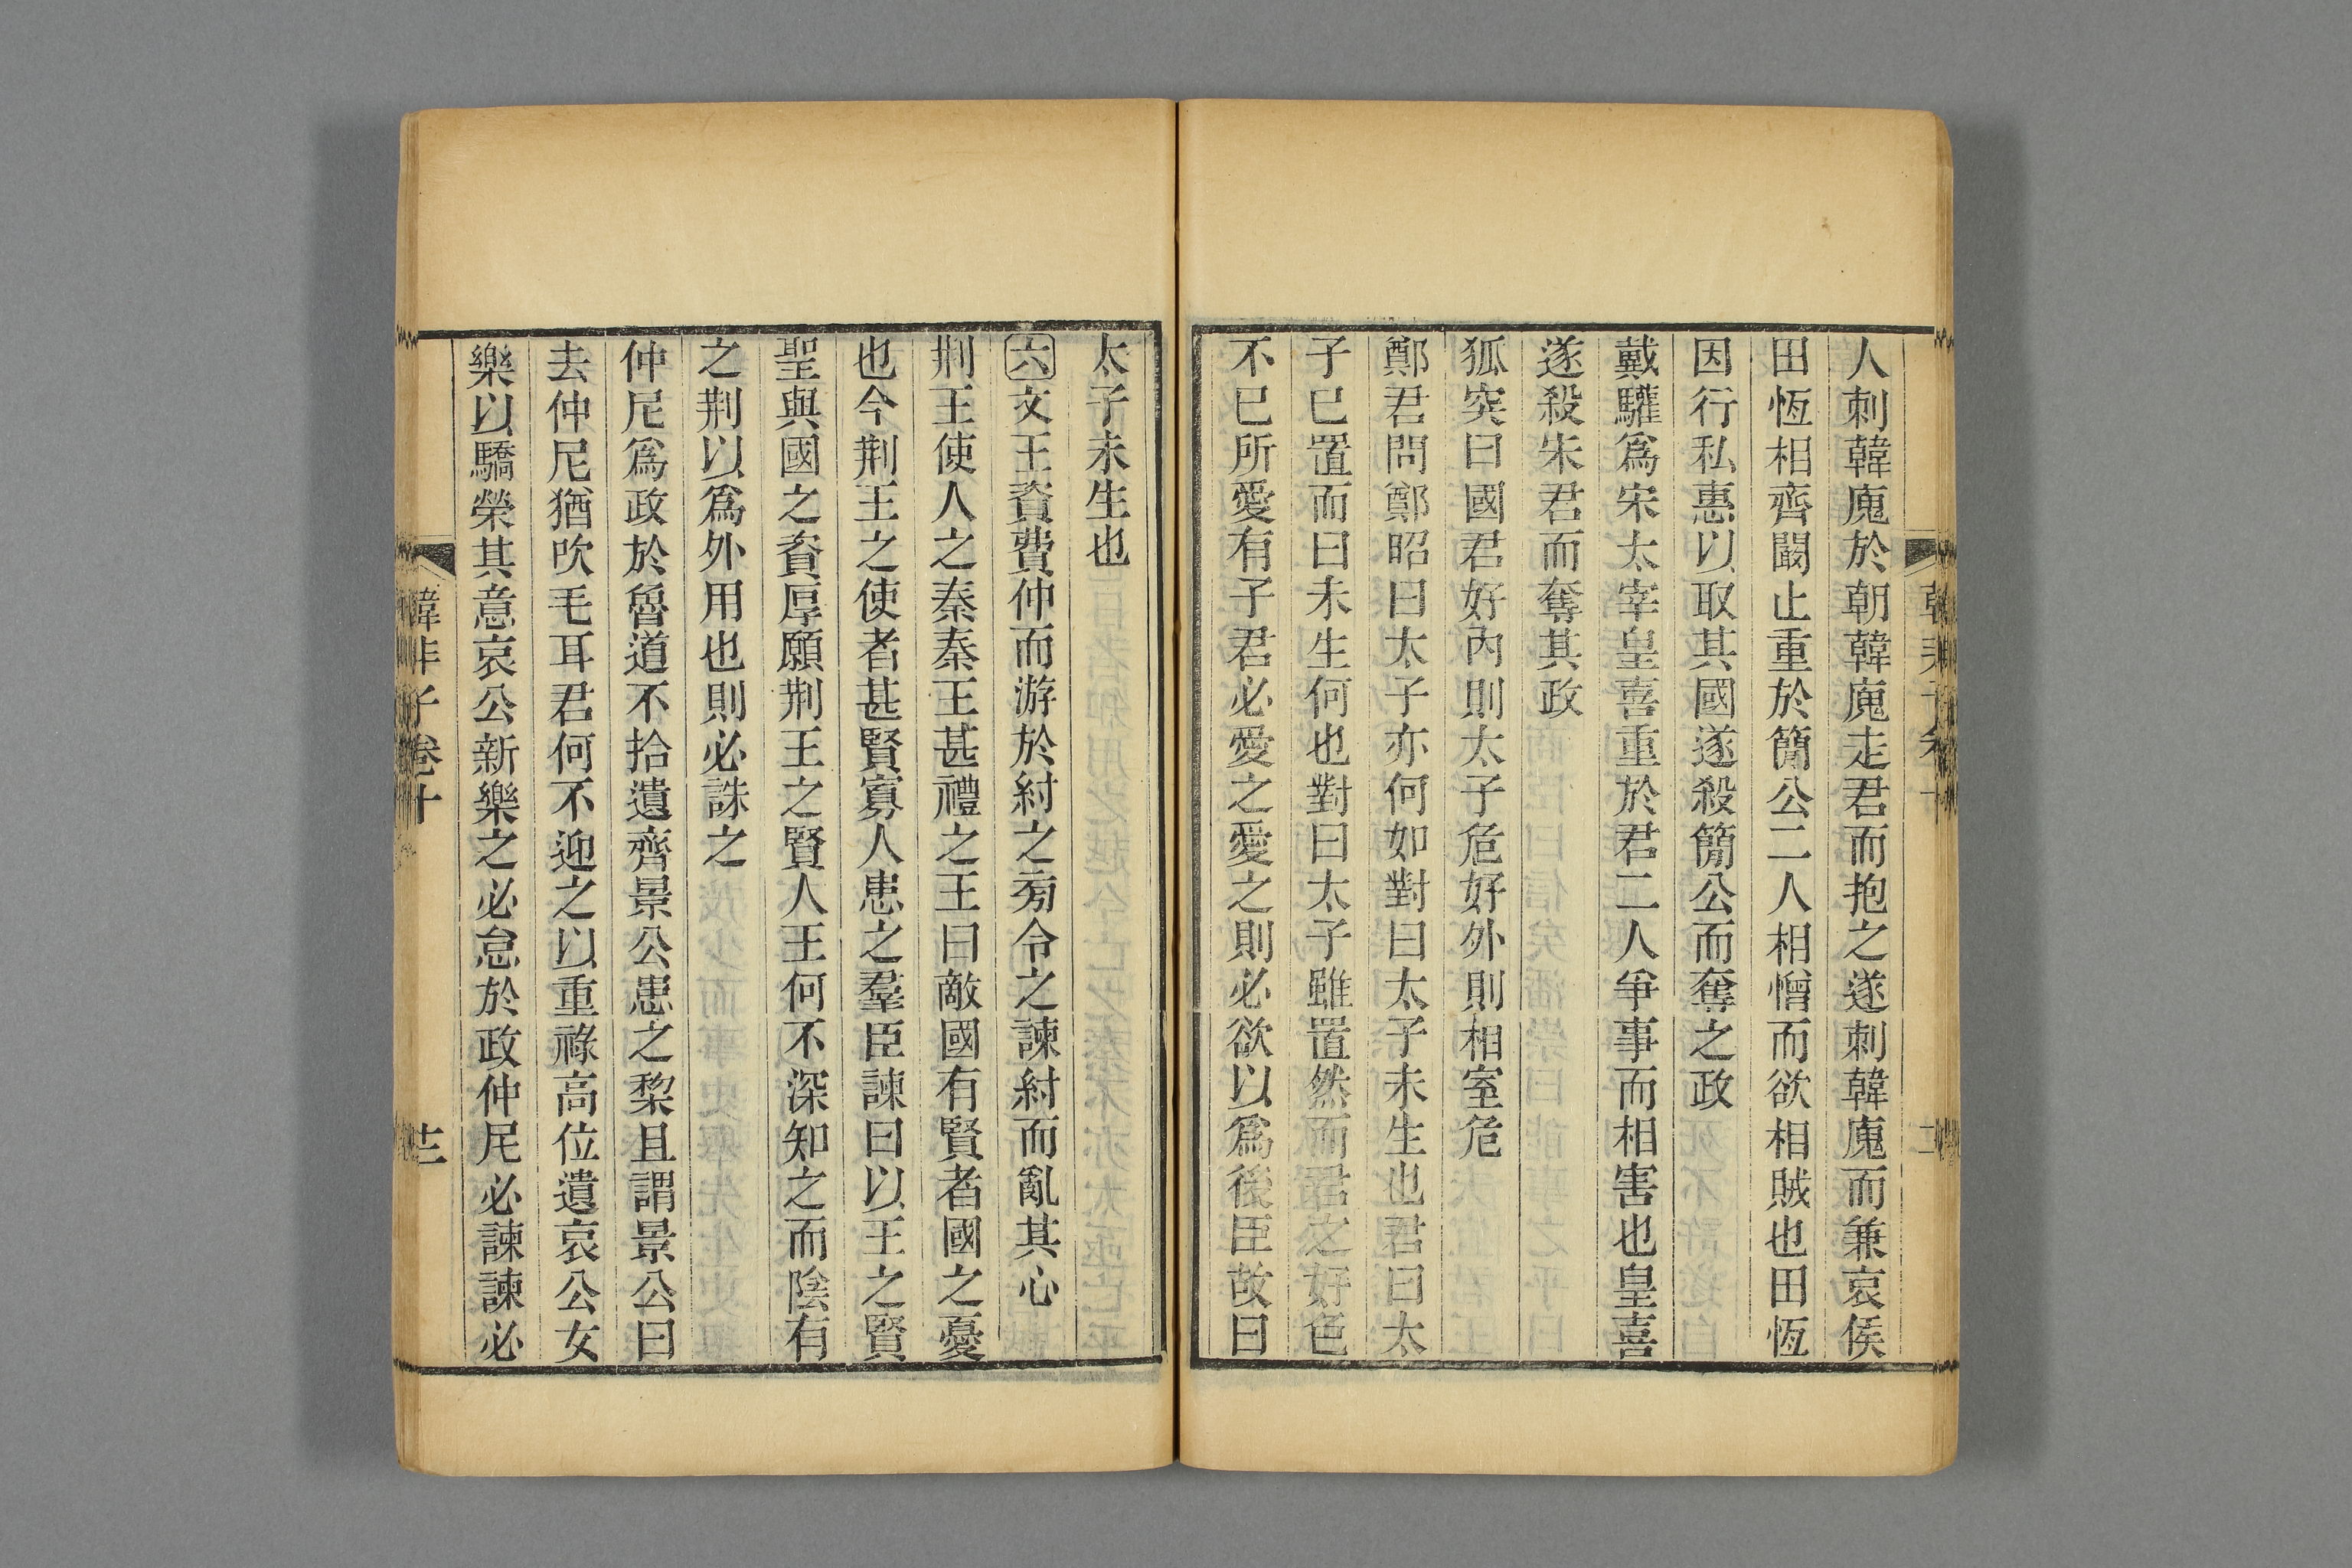 人刺韓廆於朝韓廆走君而抱之遂刺韓廆而兼哀侯
田恆相齊闞止重於簡公二人相憎而欲相賊也田恆
因行私惠以取其國遂殺簡公而奪之政
戴驩爲宋太宰皇喜重於君二人爭事而相害也皇喜
遂殺宋君而奪其政
狐突曰國君好內則太子危好外則相室危
鄭君問鄭昭曰太子亦何如對曰太子未生也君曰太
子已置而曰未生何也對曰太子雖置然而君之好色
不已所愛有子君必愛之愛之則必欲以爲後臣故曰
太子未生也
六文王資費仲而游於紂之旁令之諫紂而亂其心
荆王使人之秦秦王甚禮之王曰敵國有賢者國之憂
也今荆王之使者甚賢寡人患之羣臣諫曰以王之賢
聖與國之資厚願荆王之賢人王何不深知之而陰有
之荆以爲外用也則必誅之
仲尼爲政於魯道不拾遺齊景公患之棃且謂景公曰
去仲尼猶吹毛耳君何不迎之以重祿高位遺哀公女
樂以驕榮其意哀公新樂之必怠於政仲尼必諫諫必
韓非子卷十